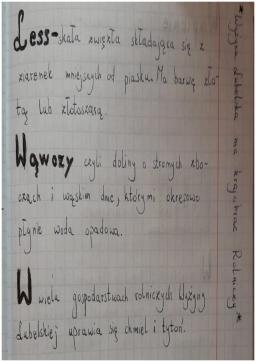 Less-skała zwięzła składająca się z
ziarenek mniejszych od piasku. Ma barwę żłó-
tą lub żłotoszarą.
Wąwozy czyli doliny o stromych zbo-
czach i wąskim dnie, którymi okresowo
płynie woda opadowa.
W wielu gospodarstwach rolniczych Wyżyny
Lubelskiej uprawia się chmiel i tytoń.
*Wyżyna Lubelska ma krajobraz Rolniczy*